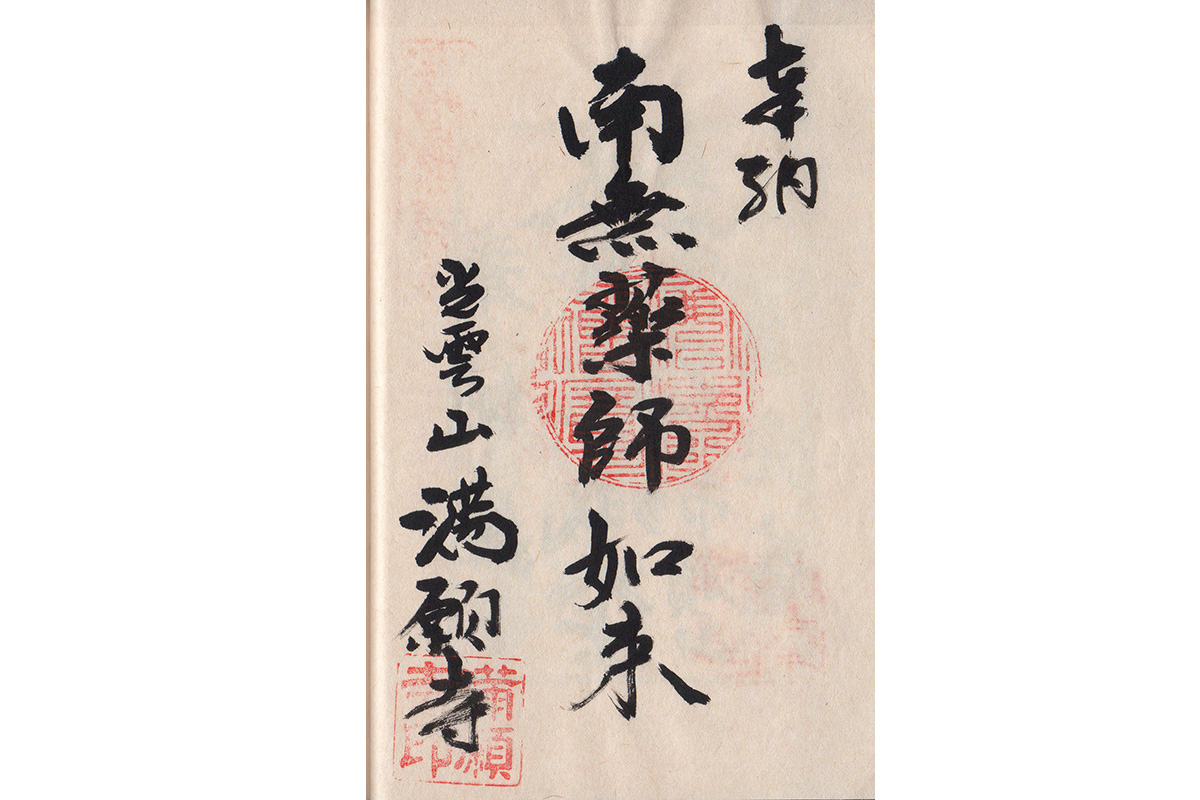 奉納
南無薬師如来
雲山満願寺
満願寺印